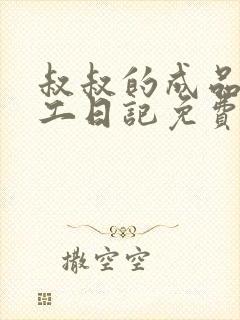 叔叔的成品
工日記免費
撒空空